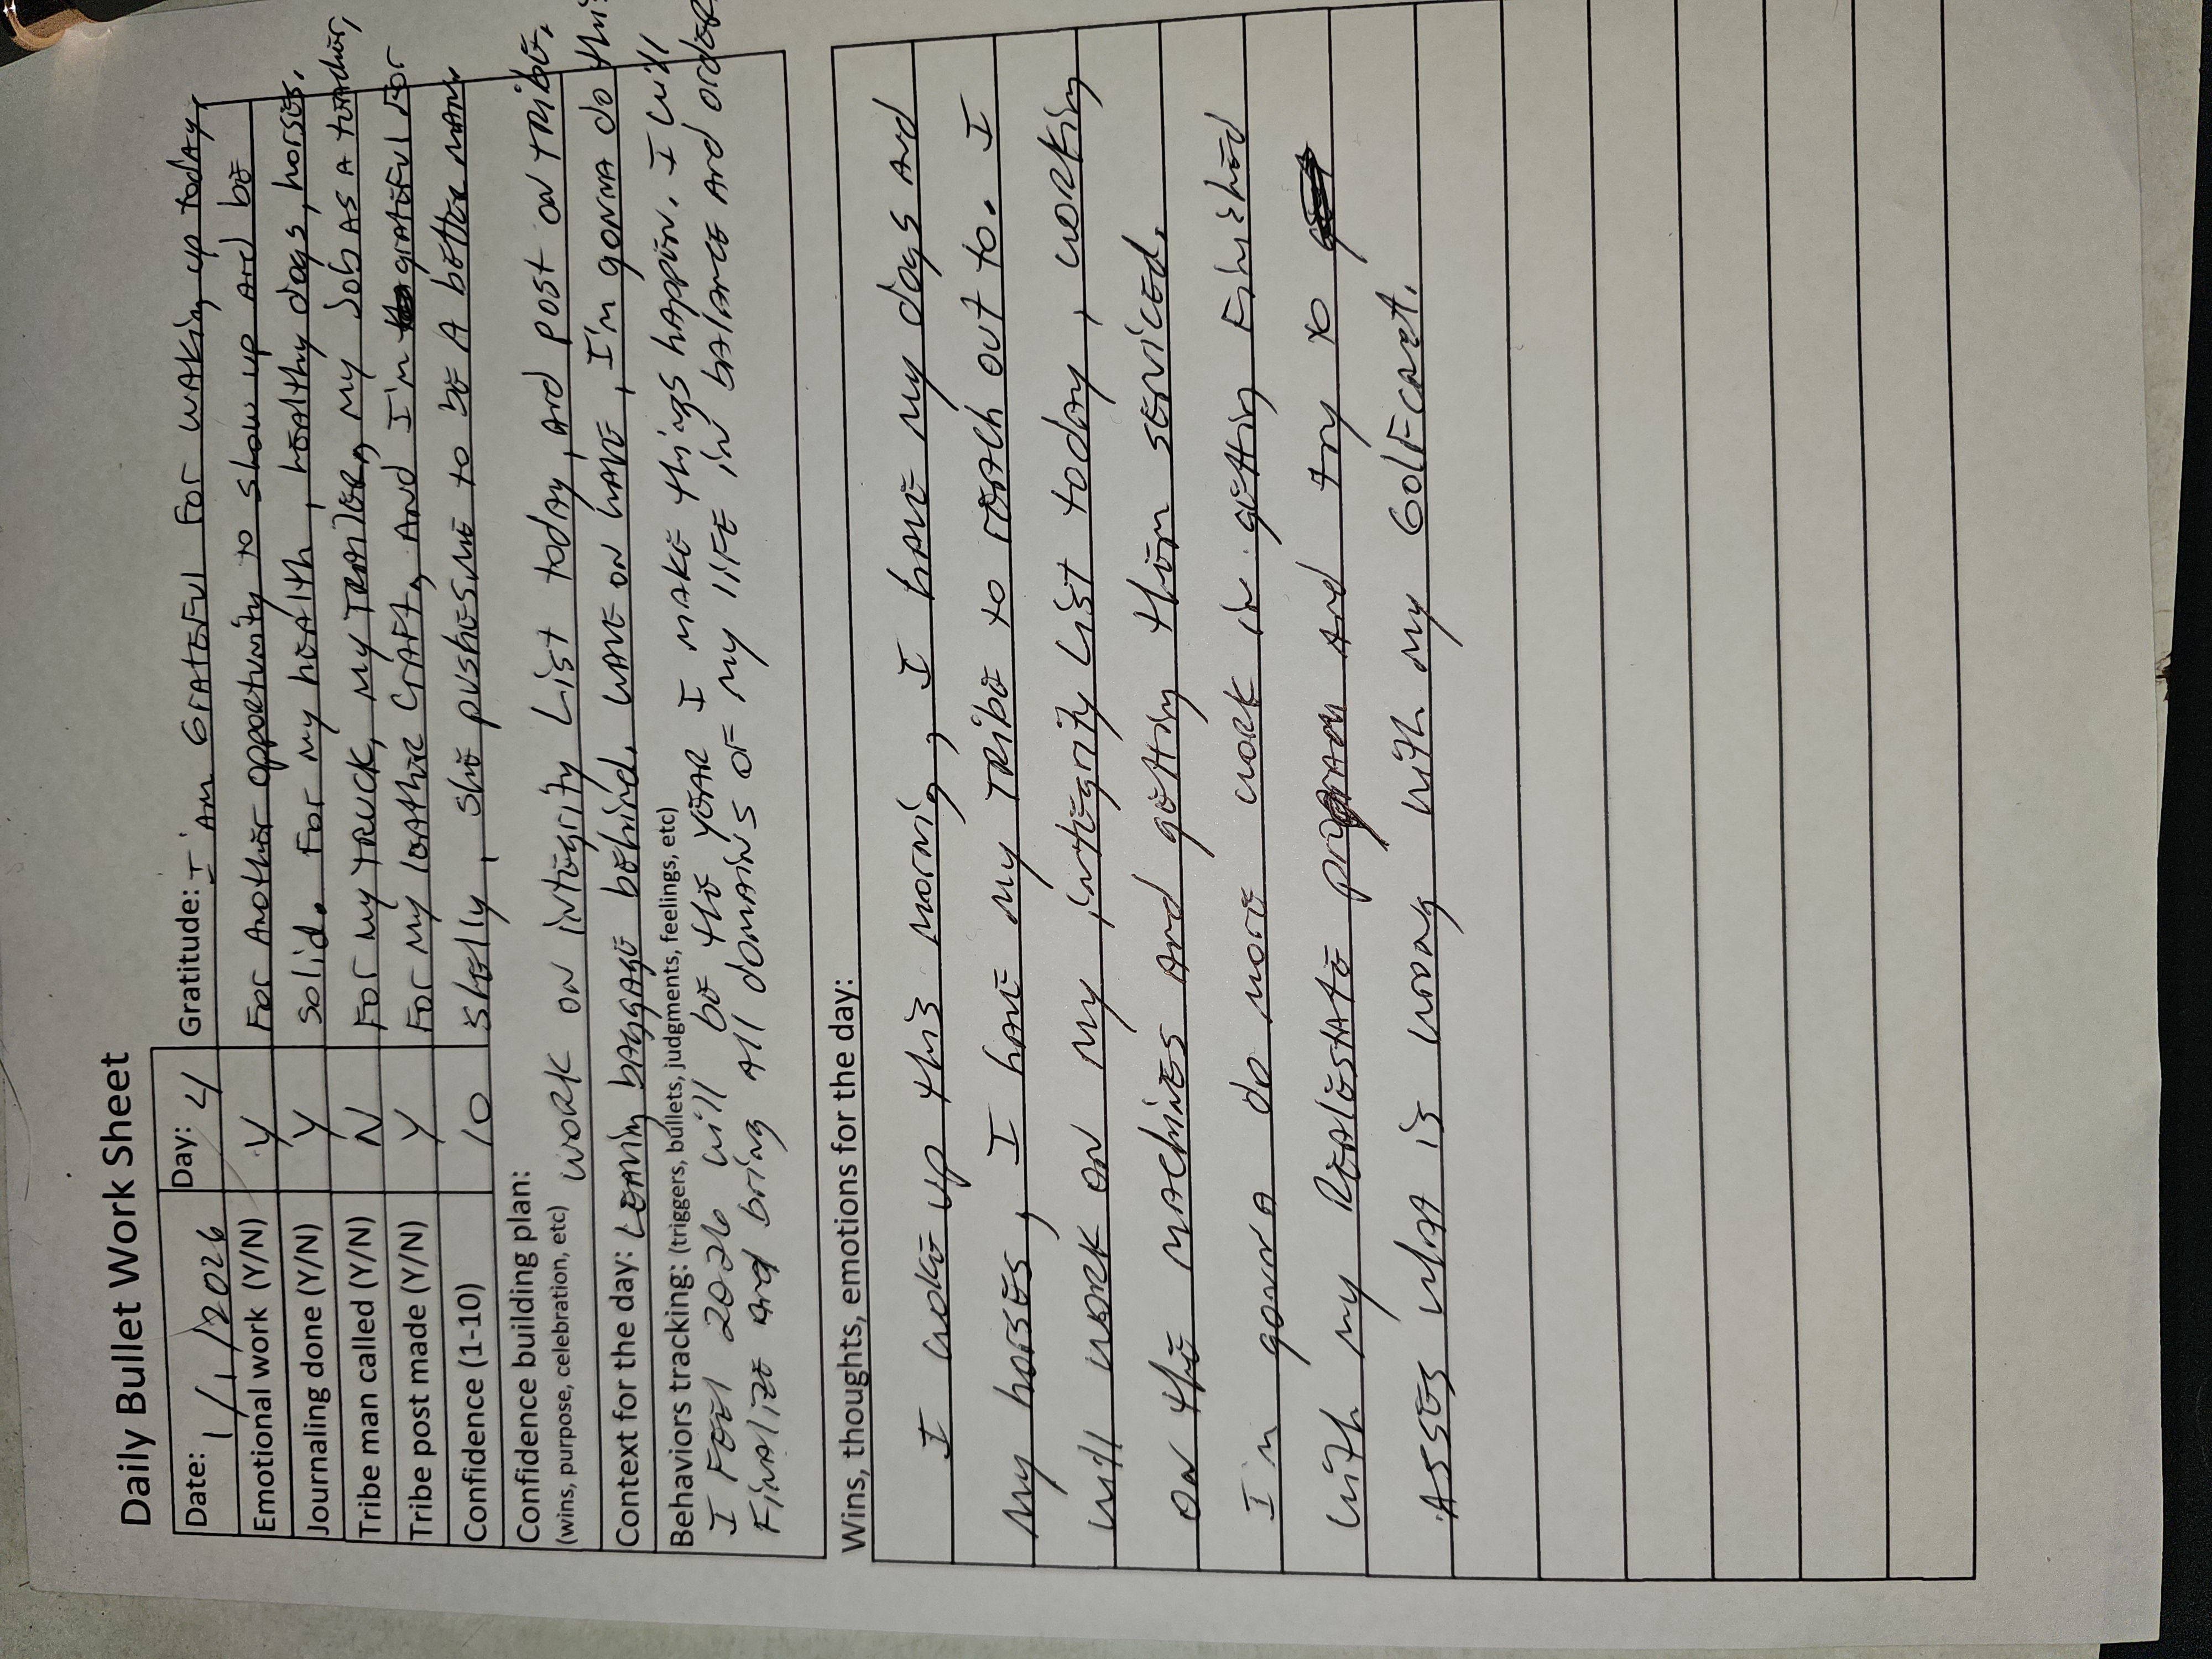 Daily Bullet Work Sheet
Date: 1/1/2026 Day: 4 Gratitude: I Am Grateful For waking up today
Emotional work (Y/N) Y For Another opportunity to show up And be
Journaling done (Y/N) Y Solid. For my health, healthy dogs, horses.
Tribe man called (Y/N) N For my Truck, my Trailer, my Job as a teacher,
Tribe post made (Y/N) Y For my leather Craft, And I'm grateful For
Confidence (1-10) 10 Shelly, she pushes me to be A better man
Confidence building plan:
(wins, purpose, celebration, etc) work on integrity List today, And post on Tribe.
Context for the day: Leaving baggage behind, wave on wave, I'm gonna do this
Behaviors tracking: (triggers, bullets, judgments, feelings, etc)
I Feel 2026 will be the year I make things happen. I will
Finalize and bring all domains of my life in balance and order.
Wins, thoughts, emotions for the day:
I woke up this morning, I have my dogs And
my horses, I have my Tribe to reach out to. I
will work on my integrity List today, working
on the machines And getting them serviced.
I'm gonna do more work in getting Finished
with my Realestate program And try to
Asses what is wrong with my Golf cart.